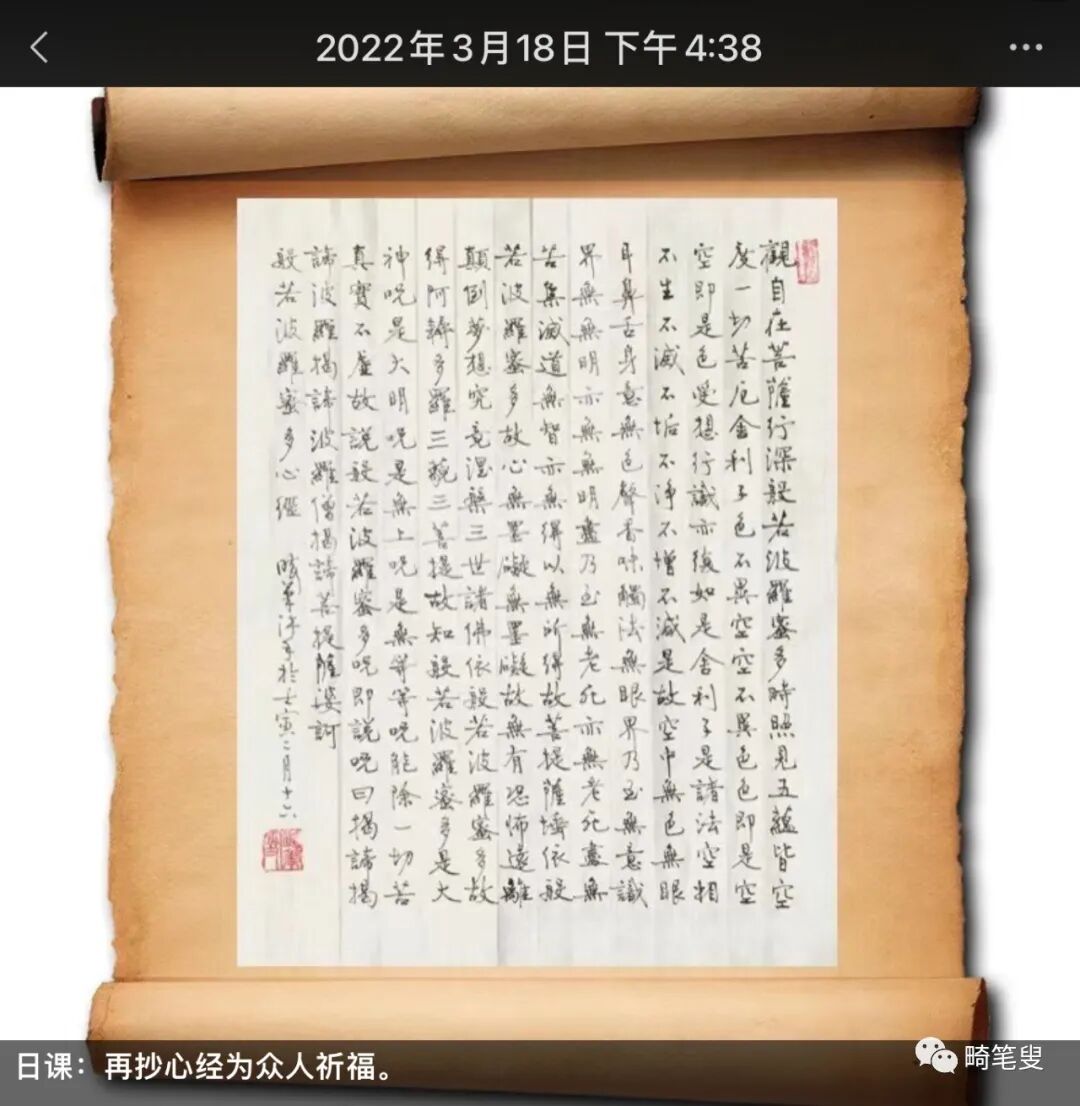 2022年3月18日 下午4:38
觀自在菩薩行深般若波羅蜜多時照見五蘊皆空
度一切苦厄舍利子色不異空空不異色色即是空
空即是色受想行識亦復如是舍利子是諸法空相
不生不滅不垢不淨不增不減是故空中無色無眼
耳鼻舌身意無色聲香味觸法無眼界乃至無意識
界無無明亦無無明盡乃至無老死亦無老死盡無
苦集滅道無智亦無得以無所得故菩提薩埵依般
若波羅蜜多故心無罣礙無罣礙故無有恐怖遠離
顛倒夢想究竟涅槃三世諸佛依般若波羅蜜多故
得阿耨多羅三藐三菩提故知般若波羅蜜多是大
神呪是大明呪是無上呪是無等等呪能除一切苦
真實不虛故說般若波羅蜜多呪即說呪曰揭諦揭
諦波羅揭諦波羅僧揭諦菩提薩婆訶
般若波羅蜜多心經 於壬寅二月十六
日课：再抄心经为众人祈福。
畸笔叟